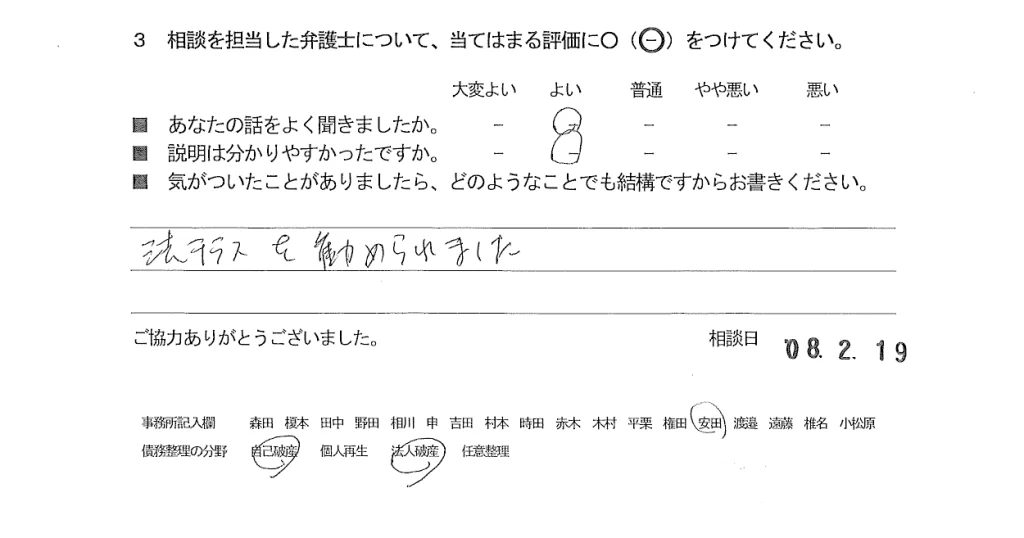 3 相談を担当した弁護士について、当てはまる評価に○(⊖)をつけてください。
大変よい よい 普通 やや悪い 悪い
■ あなたの話をよく聞きましたか。 − − − − −
■ 説明は分かりやすかったですか。 − − − − −
■ 気がついたことがありましたら、どのようなことでも結構ですからお書きください。
法テラスを勧められました
ご協力ありがとうございました。 相談日 '08. 2. 19
事務所記入欄 森田 榎本 田中 野田 相川 申 吉田 村本 時田 赤木 木村 平栗 権田 安田 渡邉 遠藤 椎名 小松原
債務整理の分野 自己破産 個人再生 法人破産 任意整理